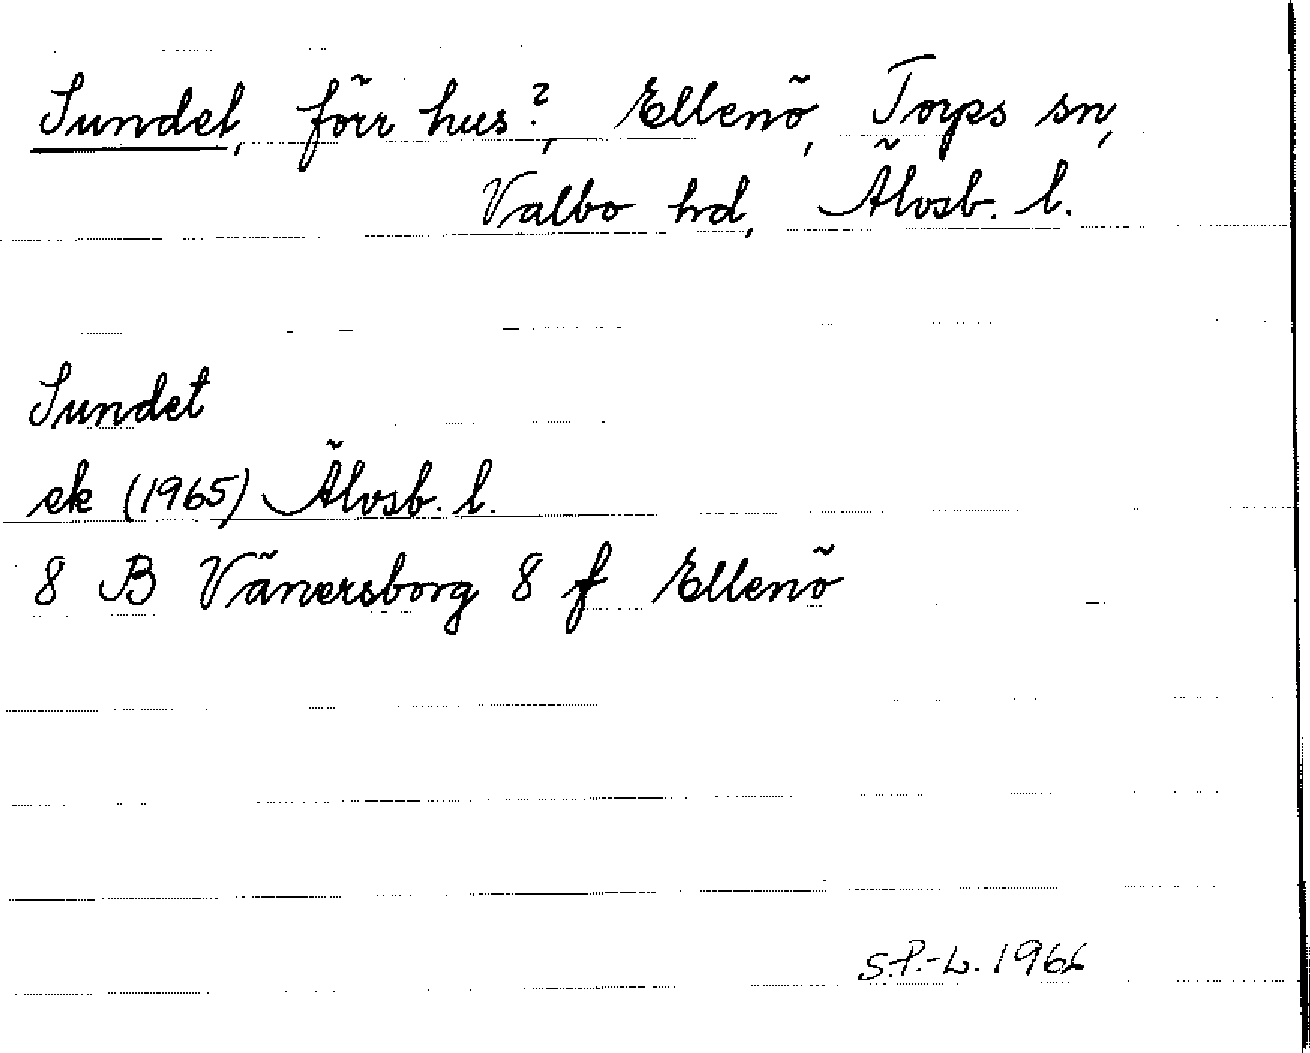 Sundet, förr hus?, Ellenö, Torps sn,
Valbo hd, Älvsb. l.
Sundet
ek (1965) Älvsb. l.
8 B Vänersborg 8 f Ellenö
S.P.-L. 1966